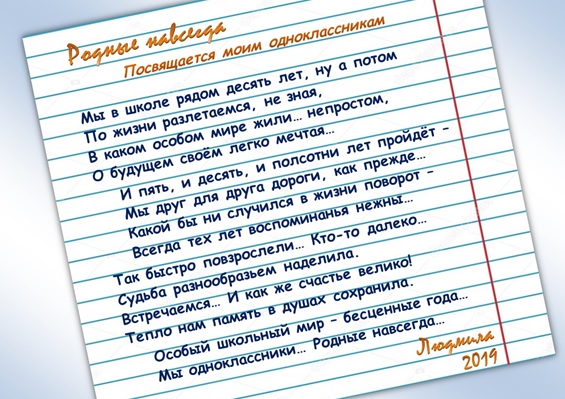 Родные навсегда
Посвящается моим одноклассникам
Мы в школе рядом десять лет, ну а потом
По жизни разлетаемся, не зная,
В каком особом мире жили... непростом,
О будущем своём легко мечтая...
И пять, и десять, и полсотни лет пройдёт –
Мы друг для друга дороги, как прежде...
Какой бы ни случился в жизни поворот –
Всегда тех лет воспоминанья нежны...
Так быстро повзрослели... Кто-то далеко...
Судьба разнообразьем наделила.
Встречаемся... И как же счастье велико!
Тепло нам память в душах сохранила.
Особый школьный мир – бесценные года...
Мы одноклассники... Родные навсегда...
Людмила
2019